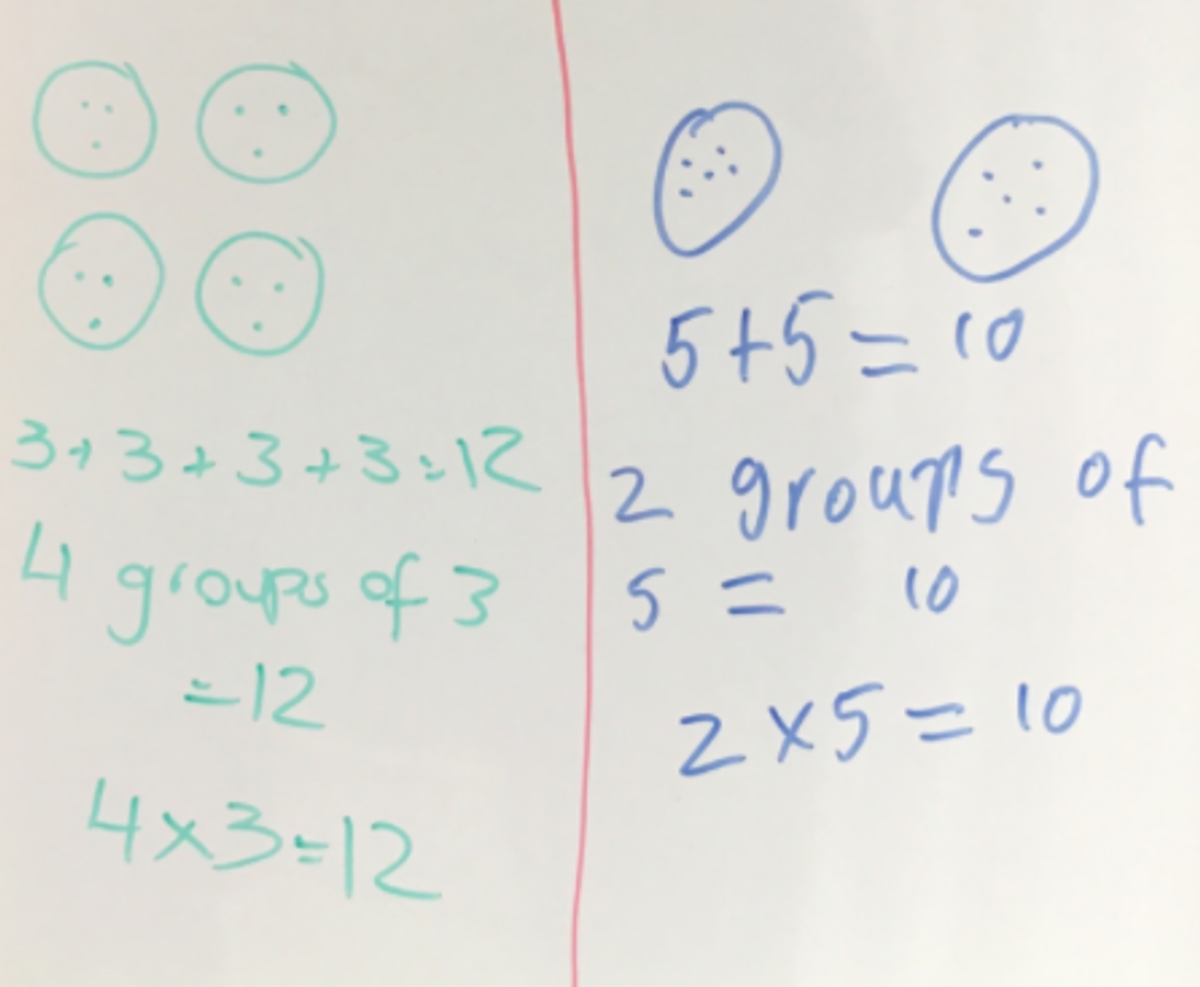 3+3+3+3=12
4 groups of 3
=12
4×3=12
5+5=10
2 groups of
5 = 10
2×5=10